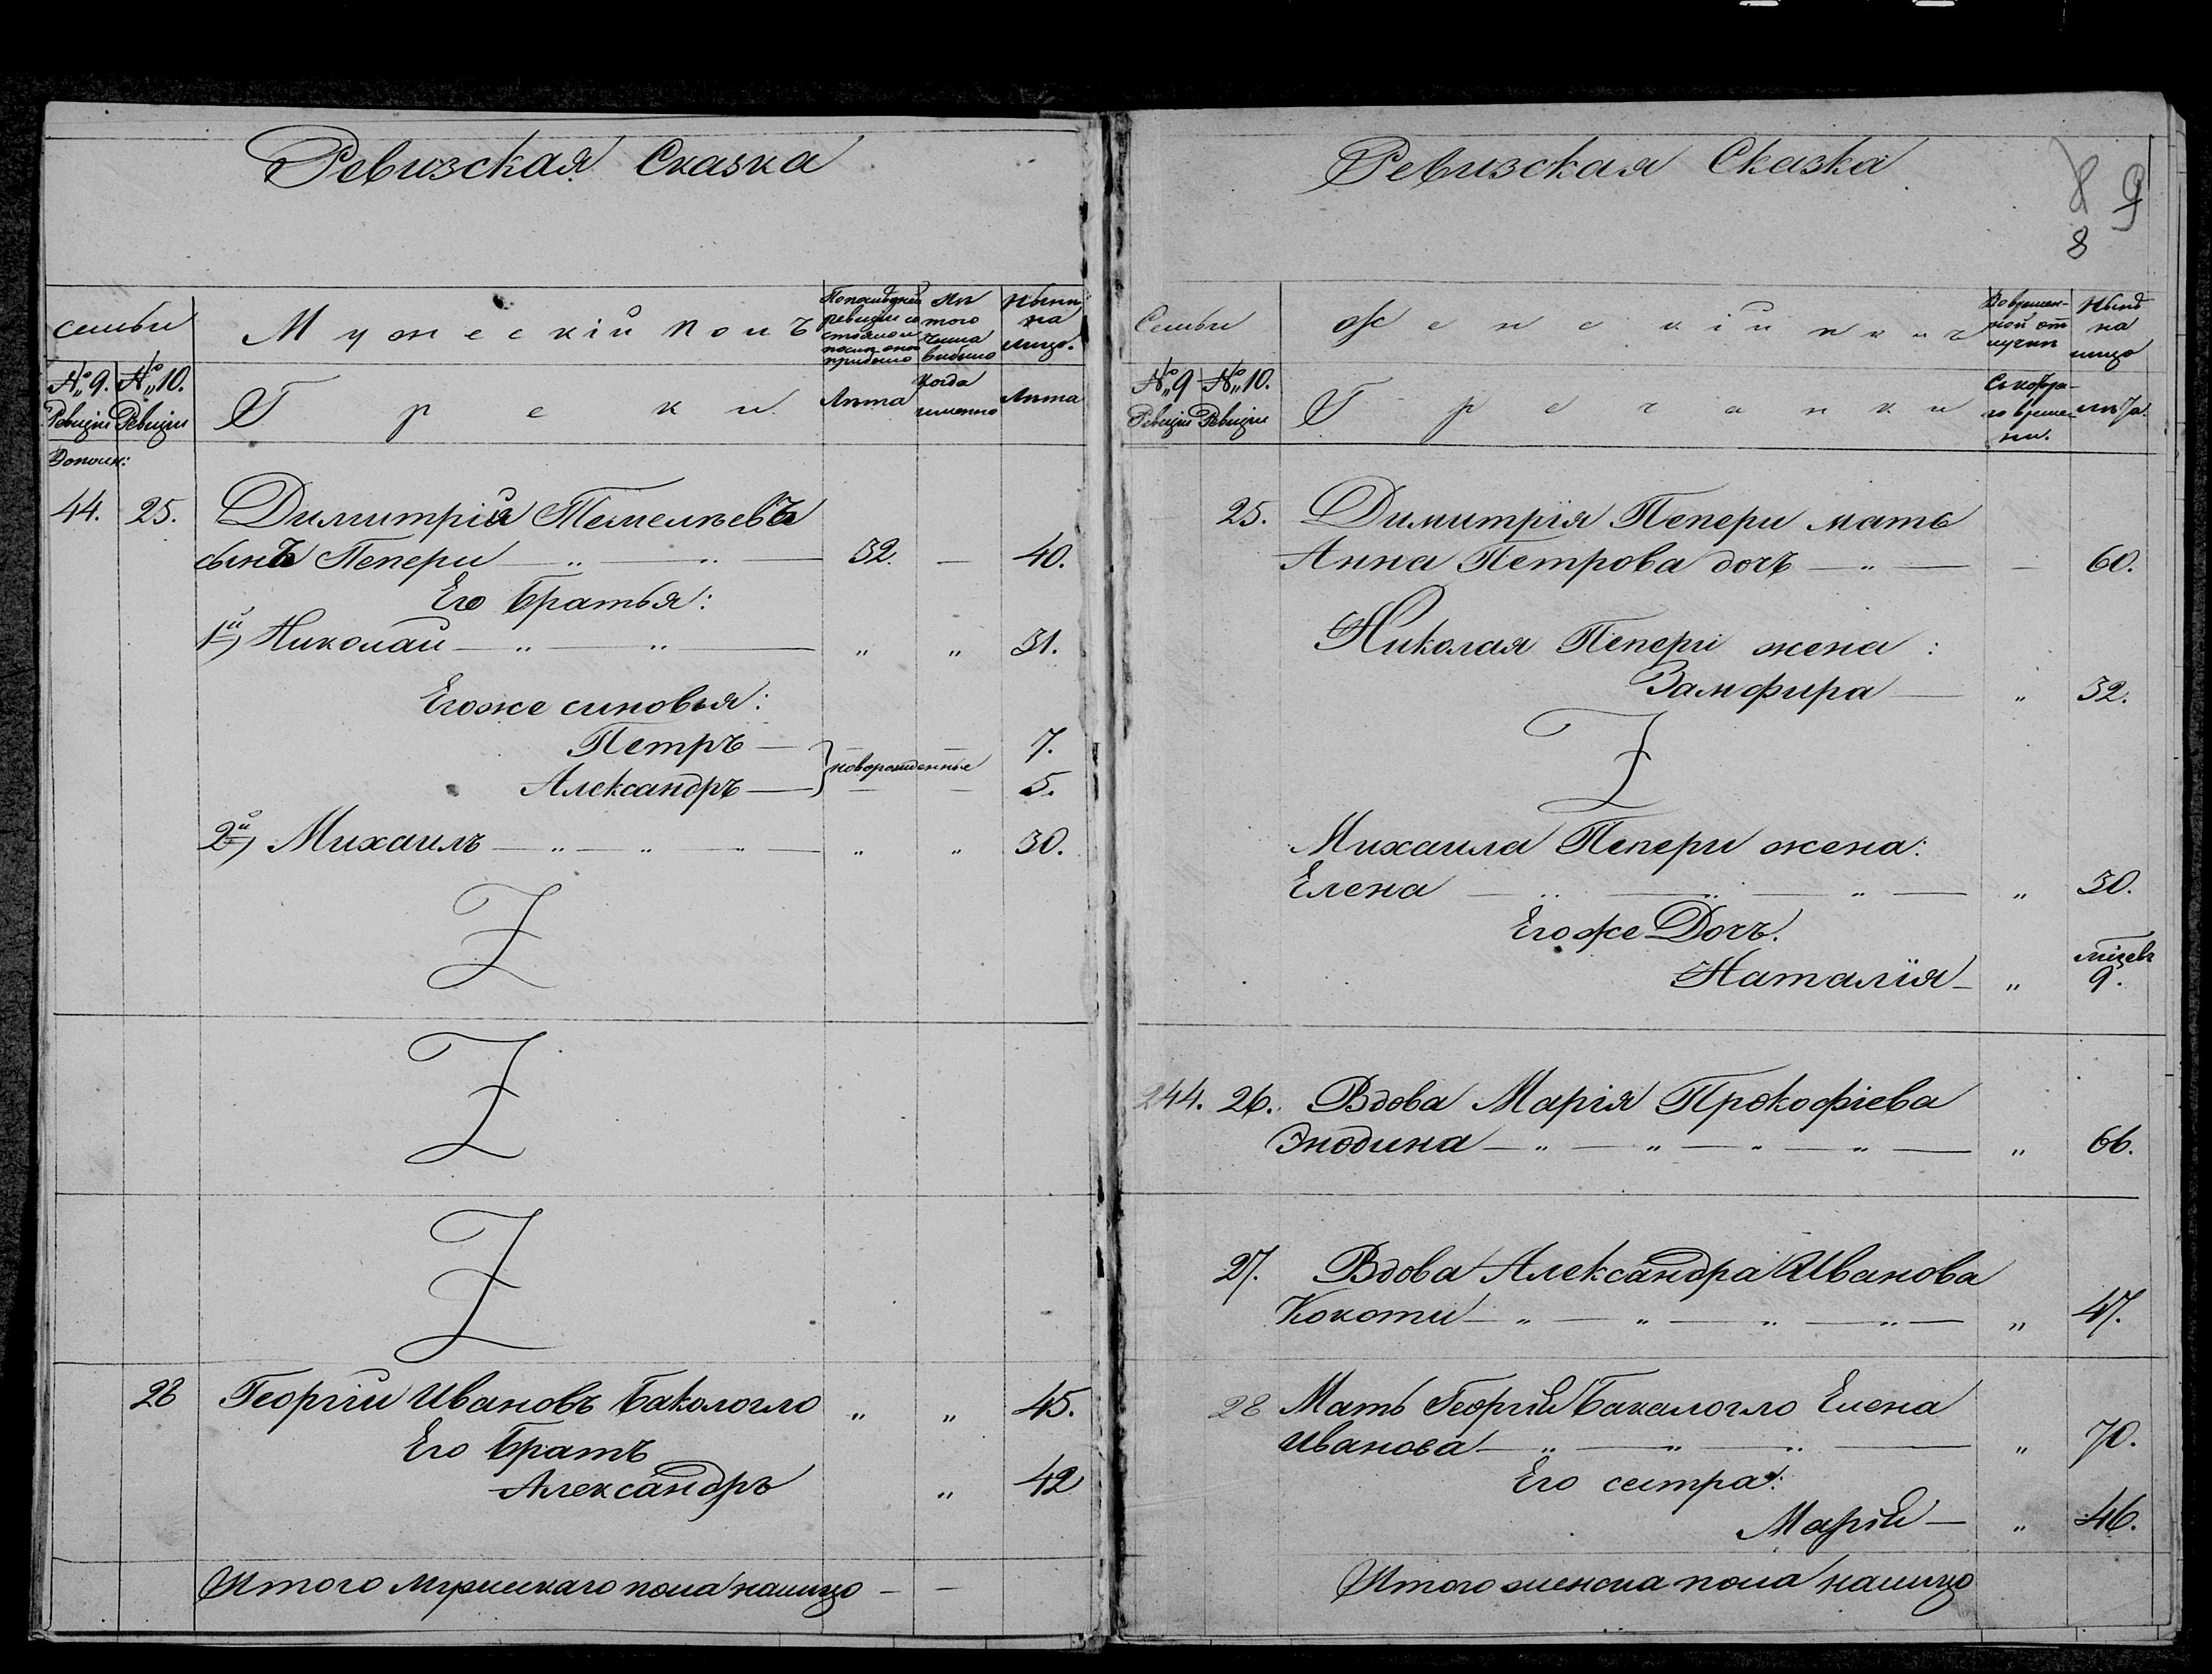 Ревизская Сказка
семьи
Мужескій полъ
По последней ревизіи состояло и после оной прибыло
Изъ того числа выбыло
Нынѣ на лицо.
№ 9. Ревизіи
№ 10. Ревизіи
Греки
Лѣта
Когда именно
Лѣта
Дополн:
44. 25. Димитрій Темелкевъ
сынъ Пепери — „ — „ — 32. — 40.
Его братья:
1й) Николай — „ — „ — „ „ 31.
Егоже синовья:
Петръ — 7.
новорожденные
Александръ — 5.
2й) Михаилъ — „ — „ — „ — „ „ 30.
28 Георгій Ивановъ Бакологло „ „ 45.
Его братъ
Александръ „ 42
Итого мужескаго пола налицо — —
Ревизская Сказка
8 9
8
Семьи
Женскій полъ
Во временной отлучкѣ
Нынѣ на лицо
№ 9 Ревизіи
№ 10. Ревизіи
Гречанки
Съ котораго времени.
лѣта.
25. Димитрія Пепери мать
Анна Петрова дочь — „ — — 60.
Николая Пепери жена:
Замфира — „ 32.
Михаила Пепери жена:
Елена — „ — „ — „ — „ 30.
Егоже Дочь.
Наталія — „ 9.
244. 26. Вдова Марія Прокофіева
Знодина — „ — „ — „ — „ — „ 66.
27. Вдова Александра Иванова
Кокоти — „ — „ — „ — „ — „ 47.
28 Мать Георгія Бакалогло Елена
Иванова — „ — „ — „ — „ 70.
Его сестра:
Марія — „ 46.
Итого женска пола налицо